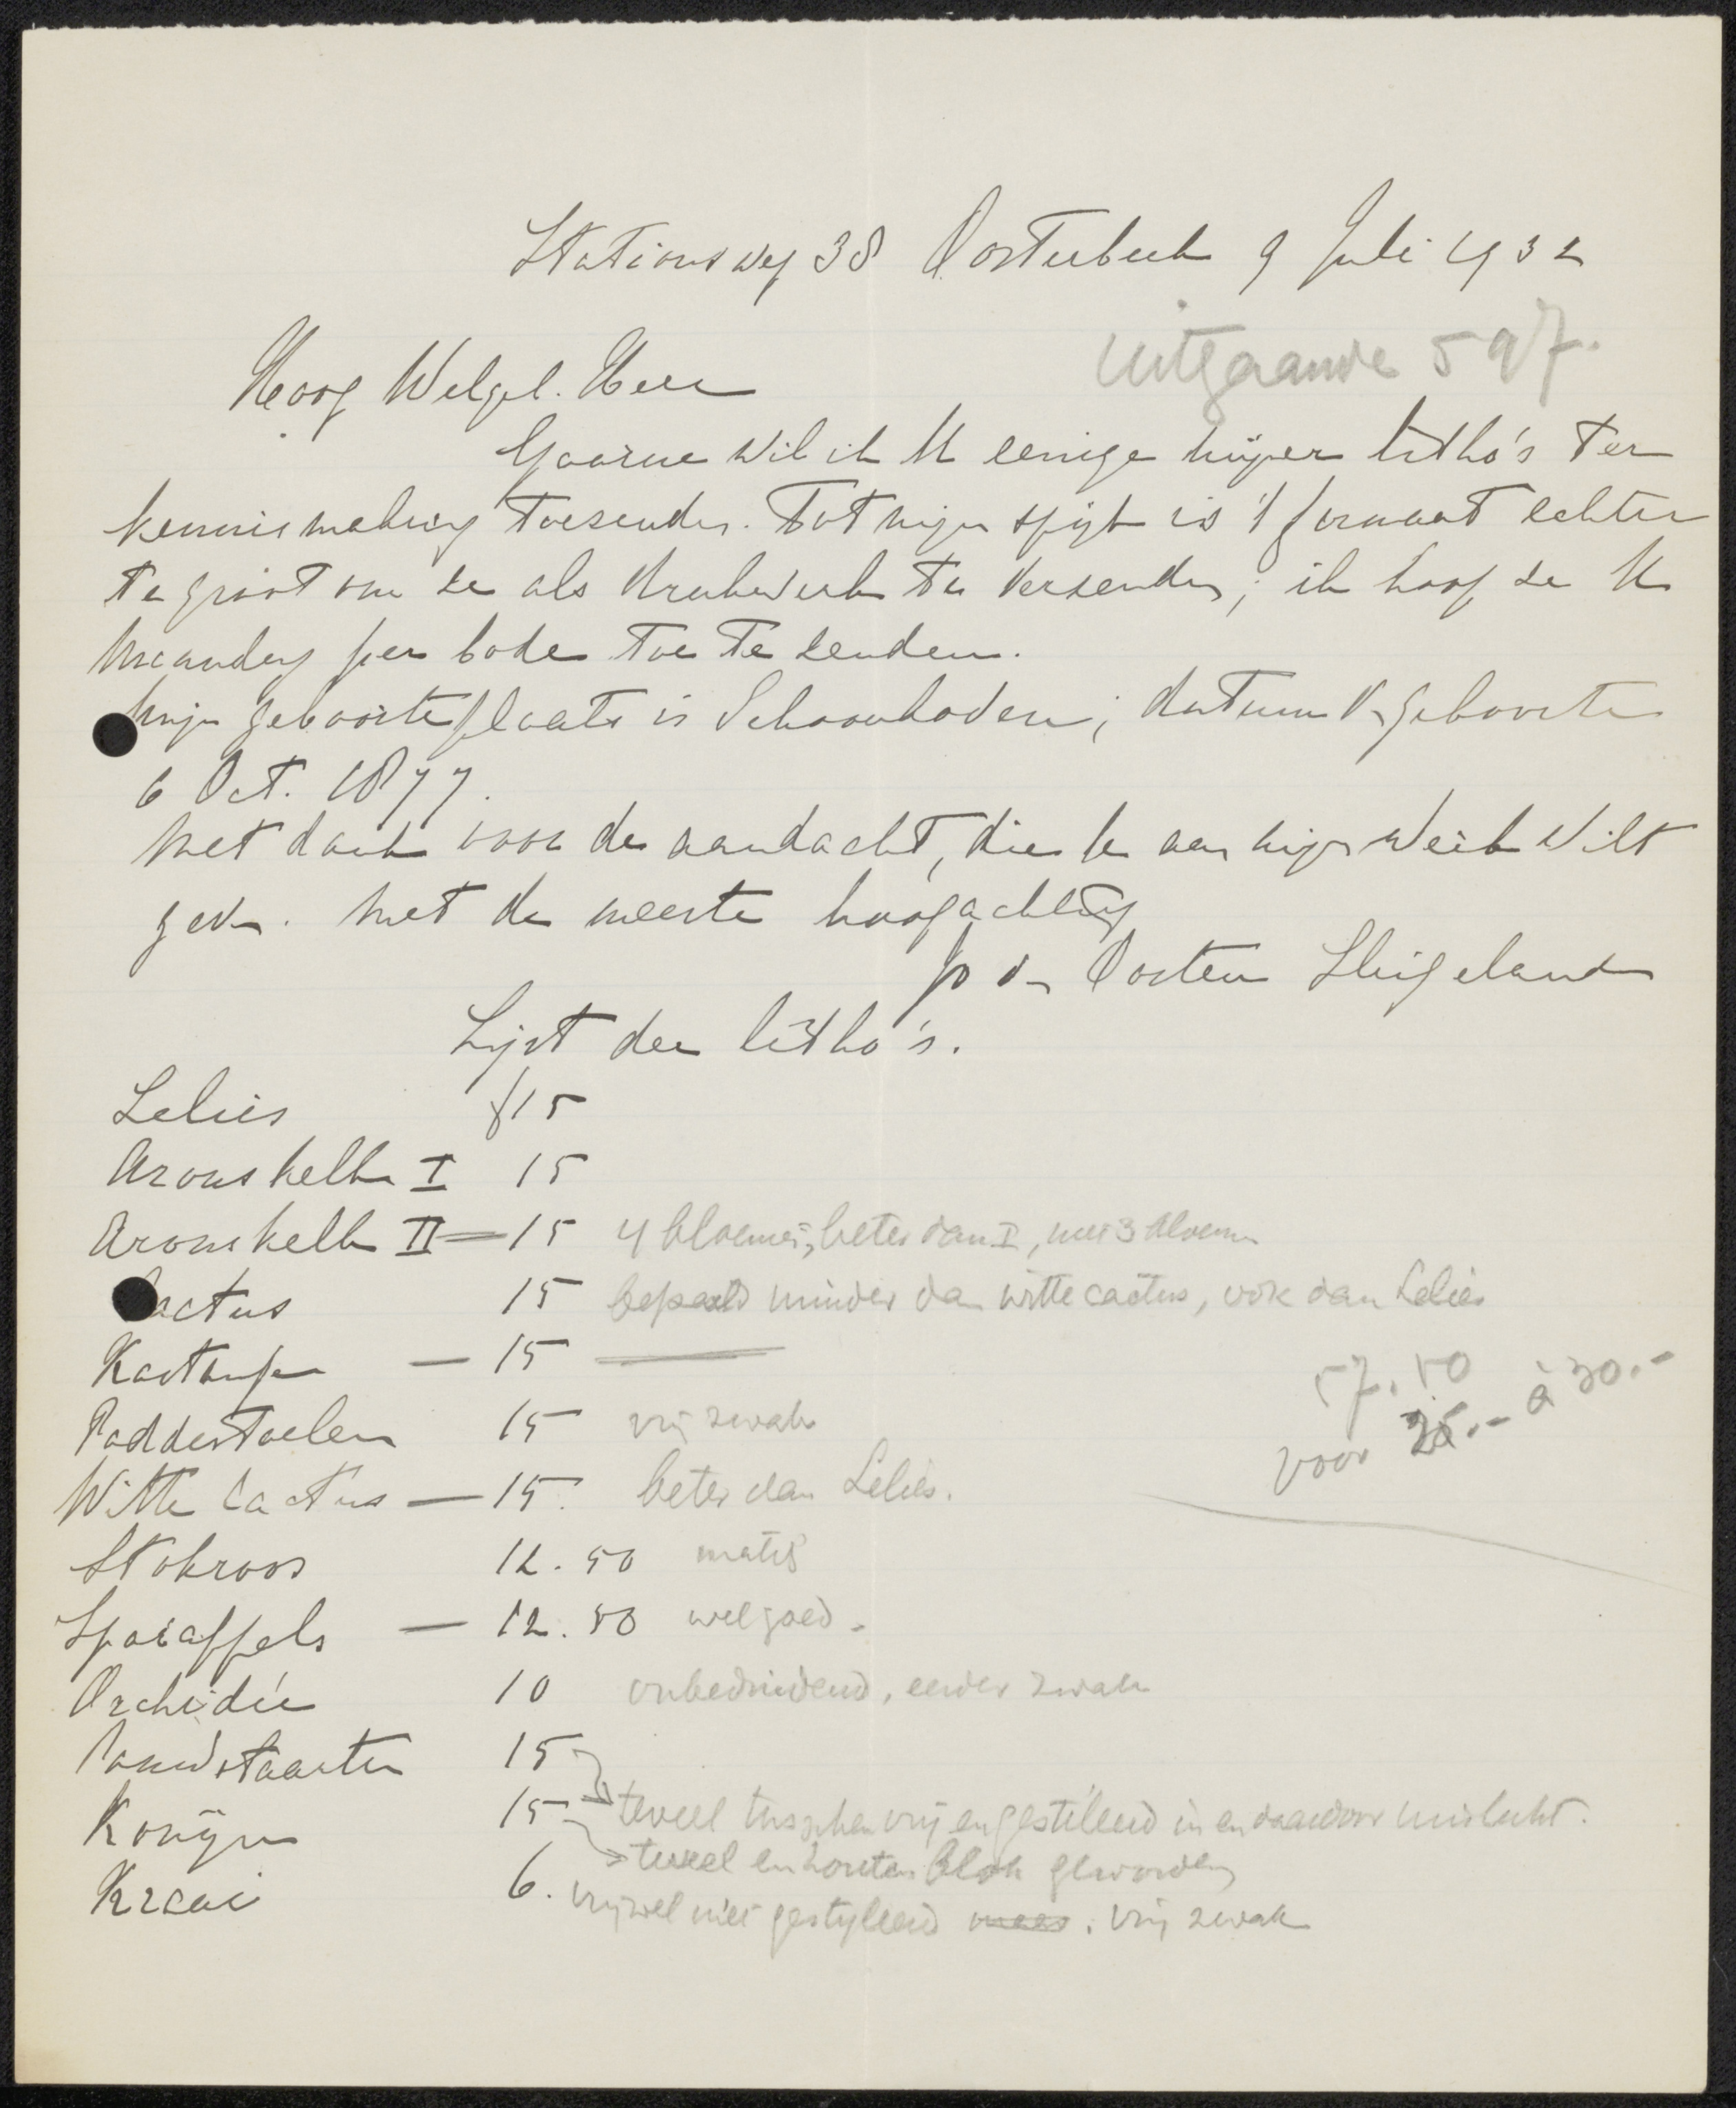 Stationsweg 38 Oosterbeek 9 Juli 1932
uitgaande 597.
Hoog Welgeb. Heer
Gaarne wil ik U eenige mijner litho's ter
kennismaking toezenden. Tot mijn spijt is 't formaat echter
te groot om ze als drukwerk te verzenden; ik hoop ze U
Maandag per bode toe te zenden.
Mijn geboorteplaats is Schoonhoven; datum v. geboorte
6 Oct. 1877.
Met dank voor de aandacht, die U aan mijn werk wilt
geven. Met de meeste hoogachting
Jo v. Oosten Slingeland
Lijst der litho's.
Lelies f15
Aronskelk I 15
Aronskelk II — 15 4 bloemen, beter dan I, met 3 bloemen
Cactus 15 bepaald minder dan witte cactus, ook dan Lelies
Kastanje — 15
57.50
Paddestoelen 15 vrij zwak
voor 25.- à 30.-
Witte Cactus — 15. beter dan Lelies.
Stokroos 12.50 matig
Sierappels — 12.50 wel goed.
Orchidée 10 onbeduidend, eerder zwak
Pauwstaarten 15
Konijn 15 teveel tusschen vrij en gestileerd in en daardoor mislukt.
teveel een houten blok geworden
Kraai 6. vrijwel niet gestyleerd. vrij zwak